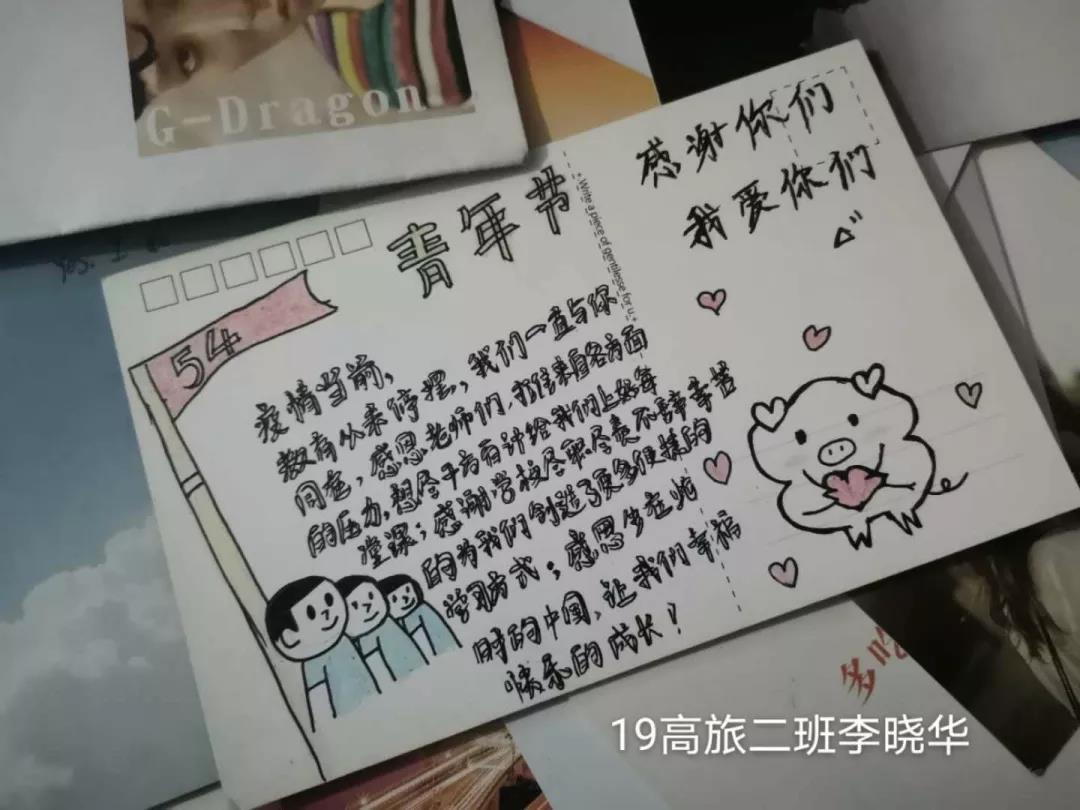 G-Dragon
青年节
54
疫情当前,
教育从来停摆,我们一直与你
同在,感恩老师们,扛住来自各方面
的压力,想尽千方百计给我们上好每
堂课;感谢学校尽职尽责不辞辛苦
的为我们创造了更多便捷的
学习方式;感恩生在此
时的中国,让我们幸福
快乐的成长!
感谢你们
我爱你们
多吃
19高旅二班李晓华